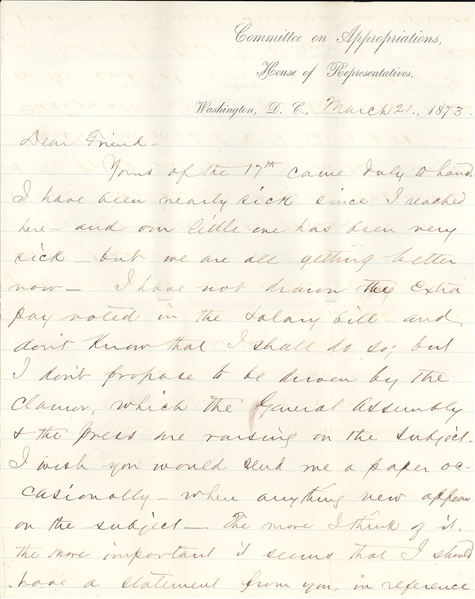 Committee on Appropriations,
House of Representatives.
Washington, D. C., March 21., 1873.
Dear Friend-
Yours of the 17th came duly to hand.
I have been nearly sick since I reached
here - and our little one has been very
sick - but we are all getting better
now - I have not drawn my Extra
pay voted in the salary bill - and
don't Know that I shall do so; but
I don't propose to be driven by the
Clamor, which the General Assembly
& the press are raising on the subject.
I wish you would send me a paper oc-
casionally - when anything new appears
on the subject - The more I think of it,
the more important it seems that I should
have a statement from you, in reference